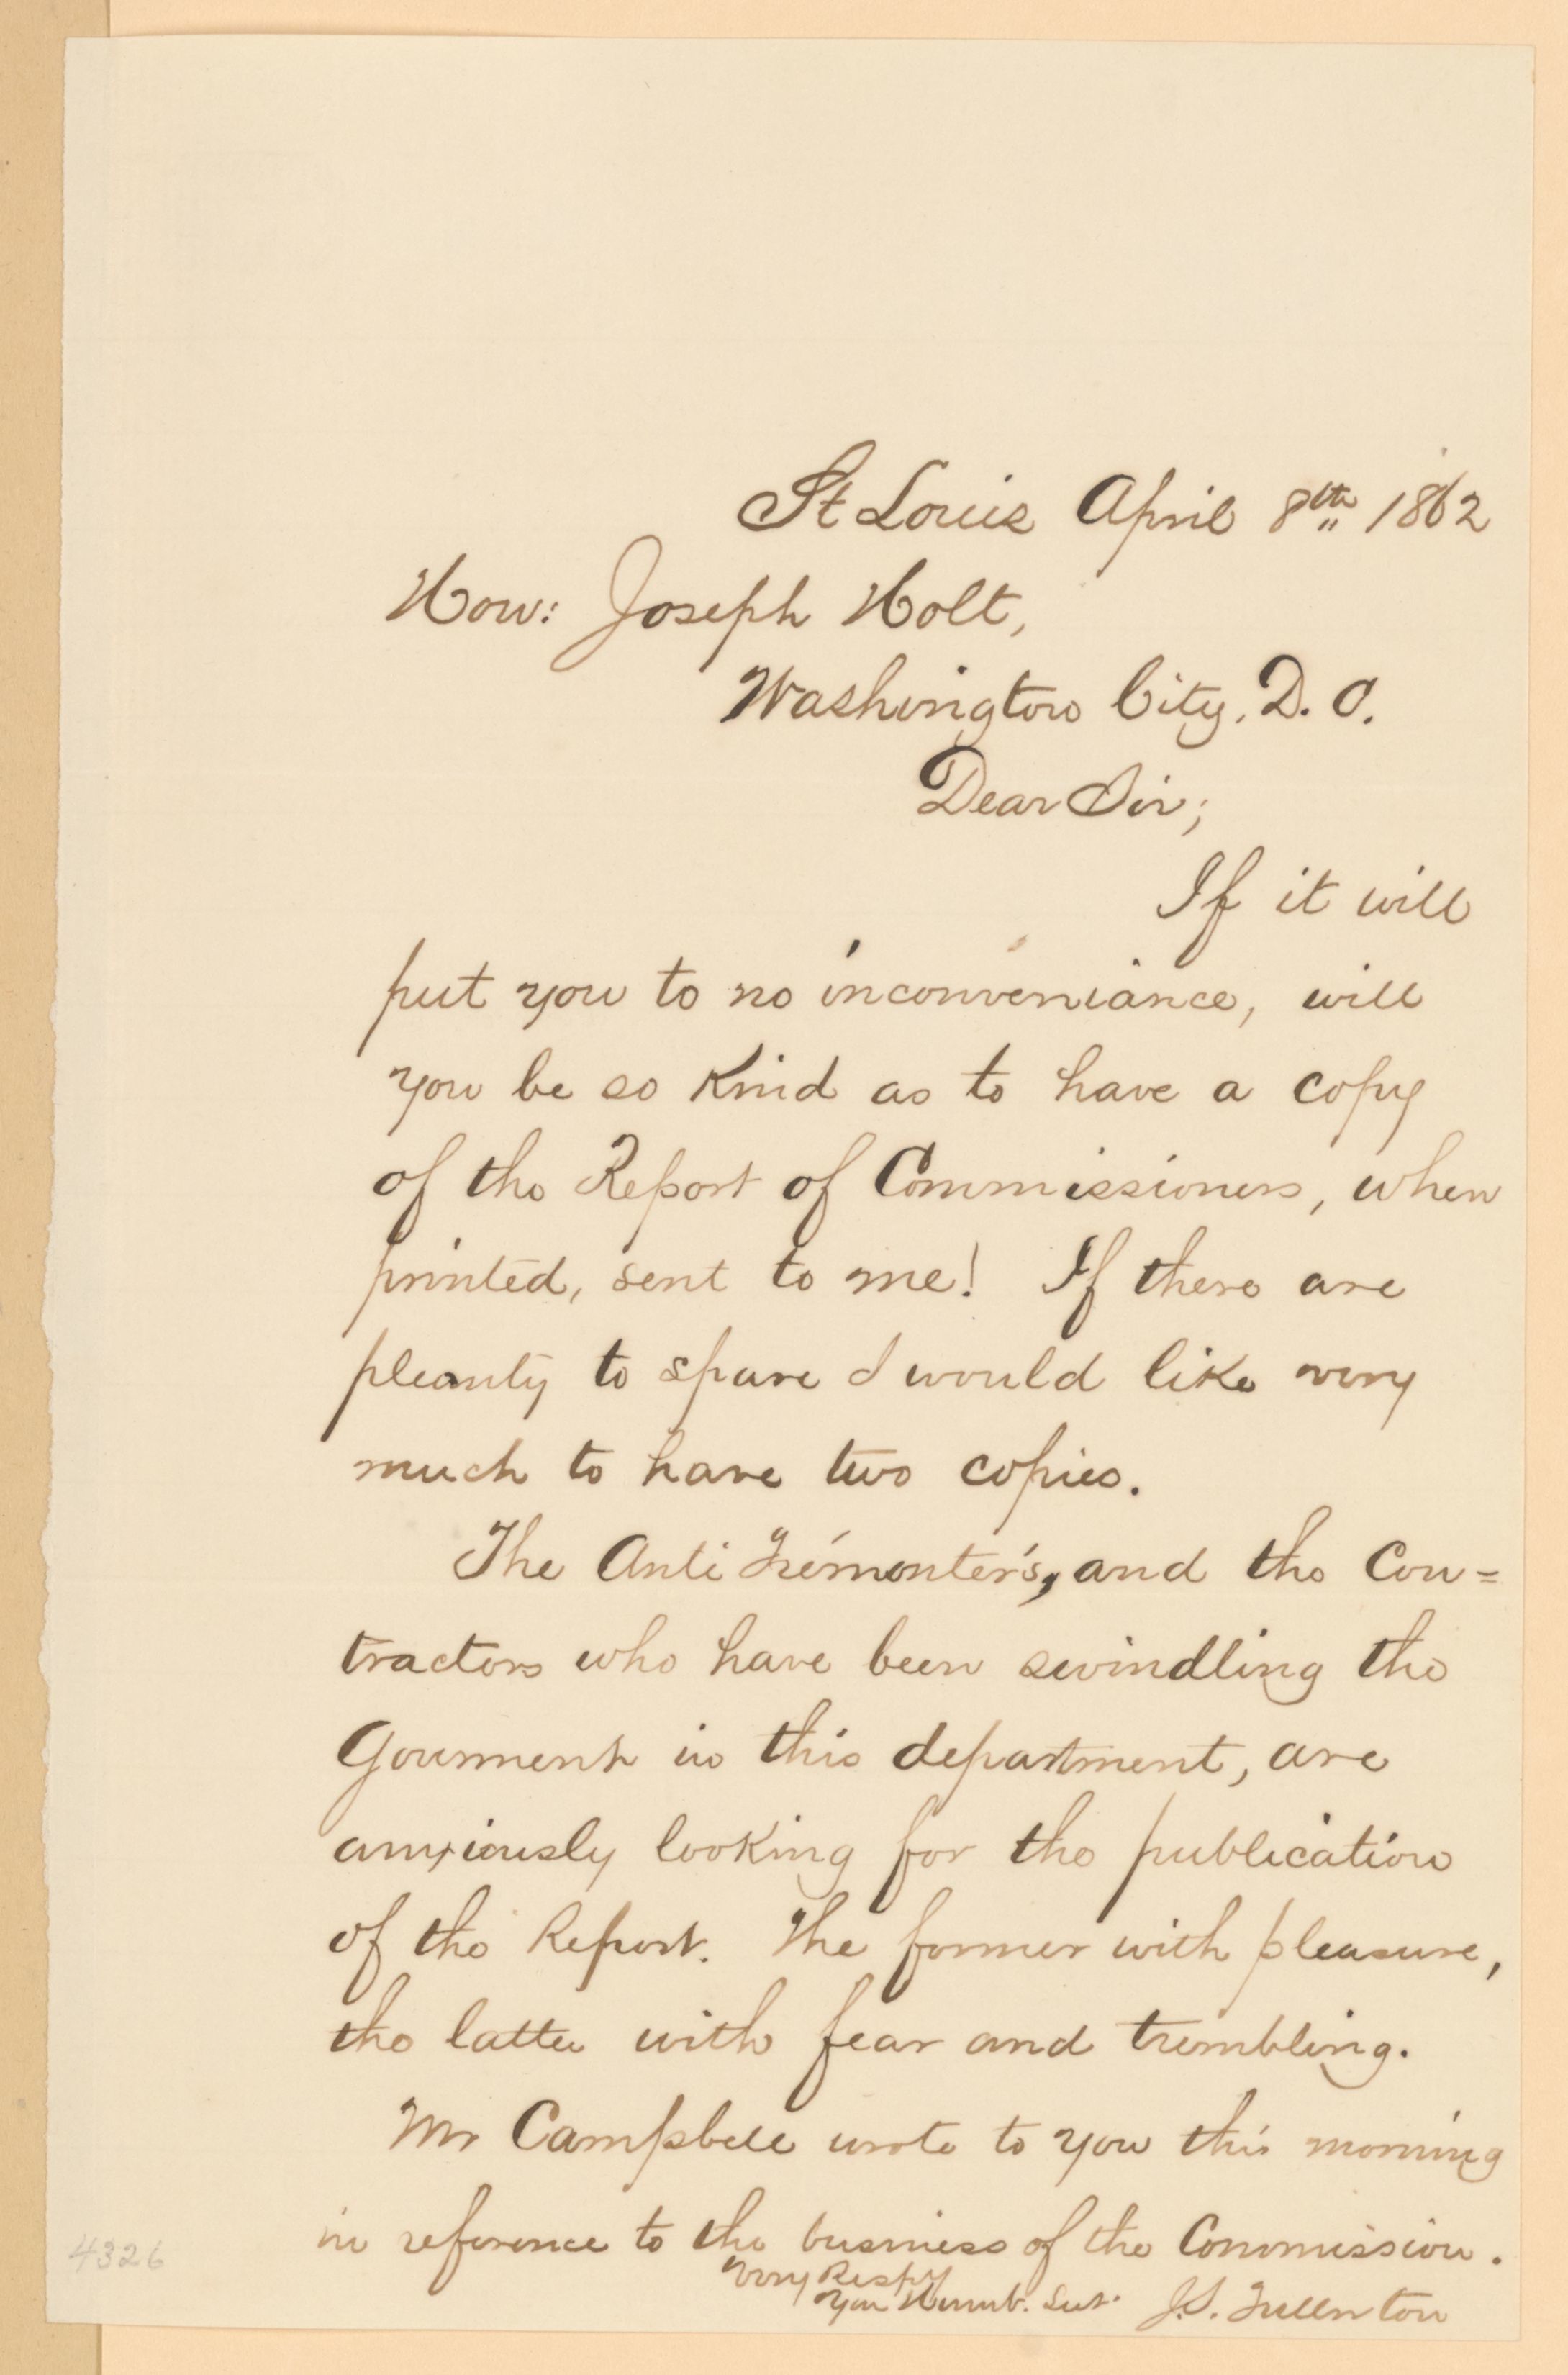 St Louis April 8th 1862
Hon: Joseph Holt,
Washington City, D. C.
Dear Sir;
If it will
put you to no inconveniance, will
you be so kind as to have a copy
of the Report of Commissioners, when
printed, sent to me! If there are
pleanty to spare I would like very
much to have two copies.
The Anti Frémonter's, and the Con=
tractors who have been swindling the
Gourment in this department, are
anxiously looking for the publication
of the Report. The former with pleasure,
the latter with fear and trembling.
Mr Campbell wrote to you this morning
in reference to the business of the Commission.
Very Respy
Your Humb. Sert. J.S. Fullerton
4326